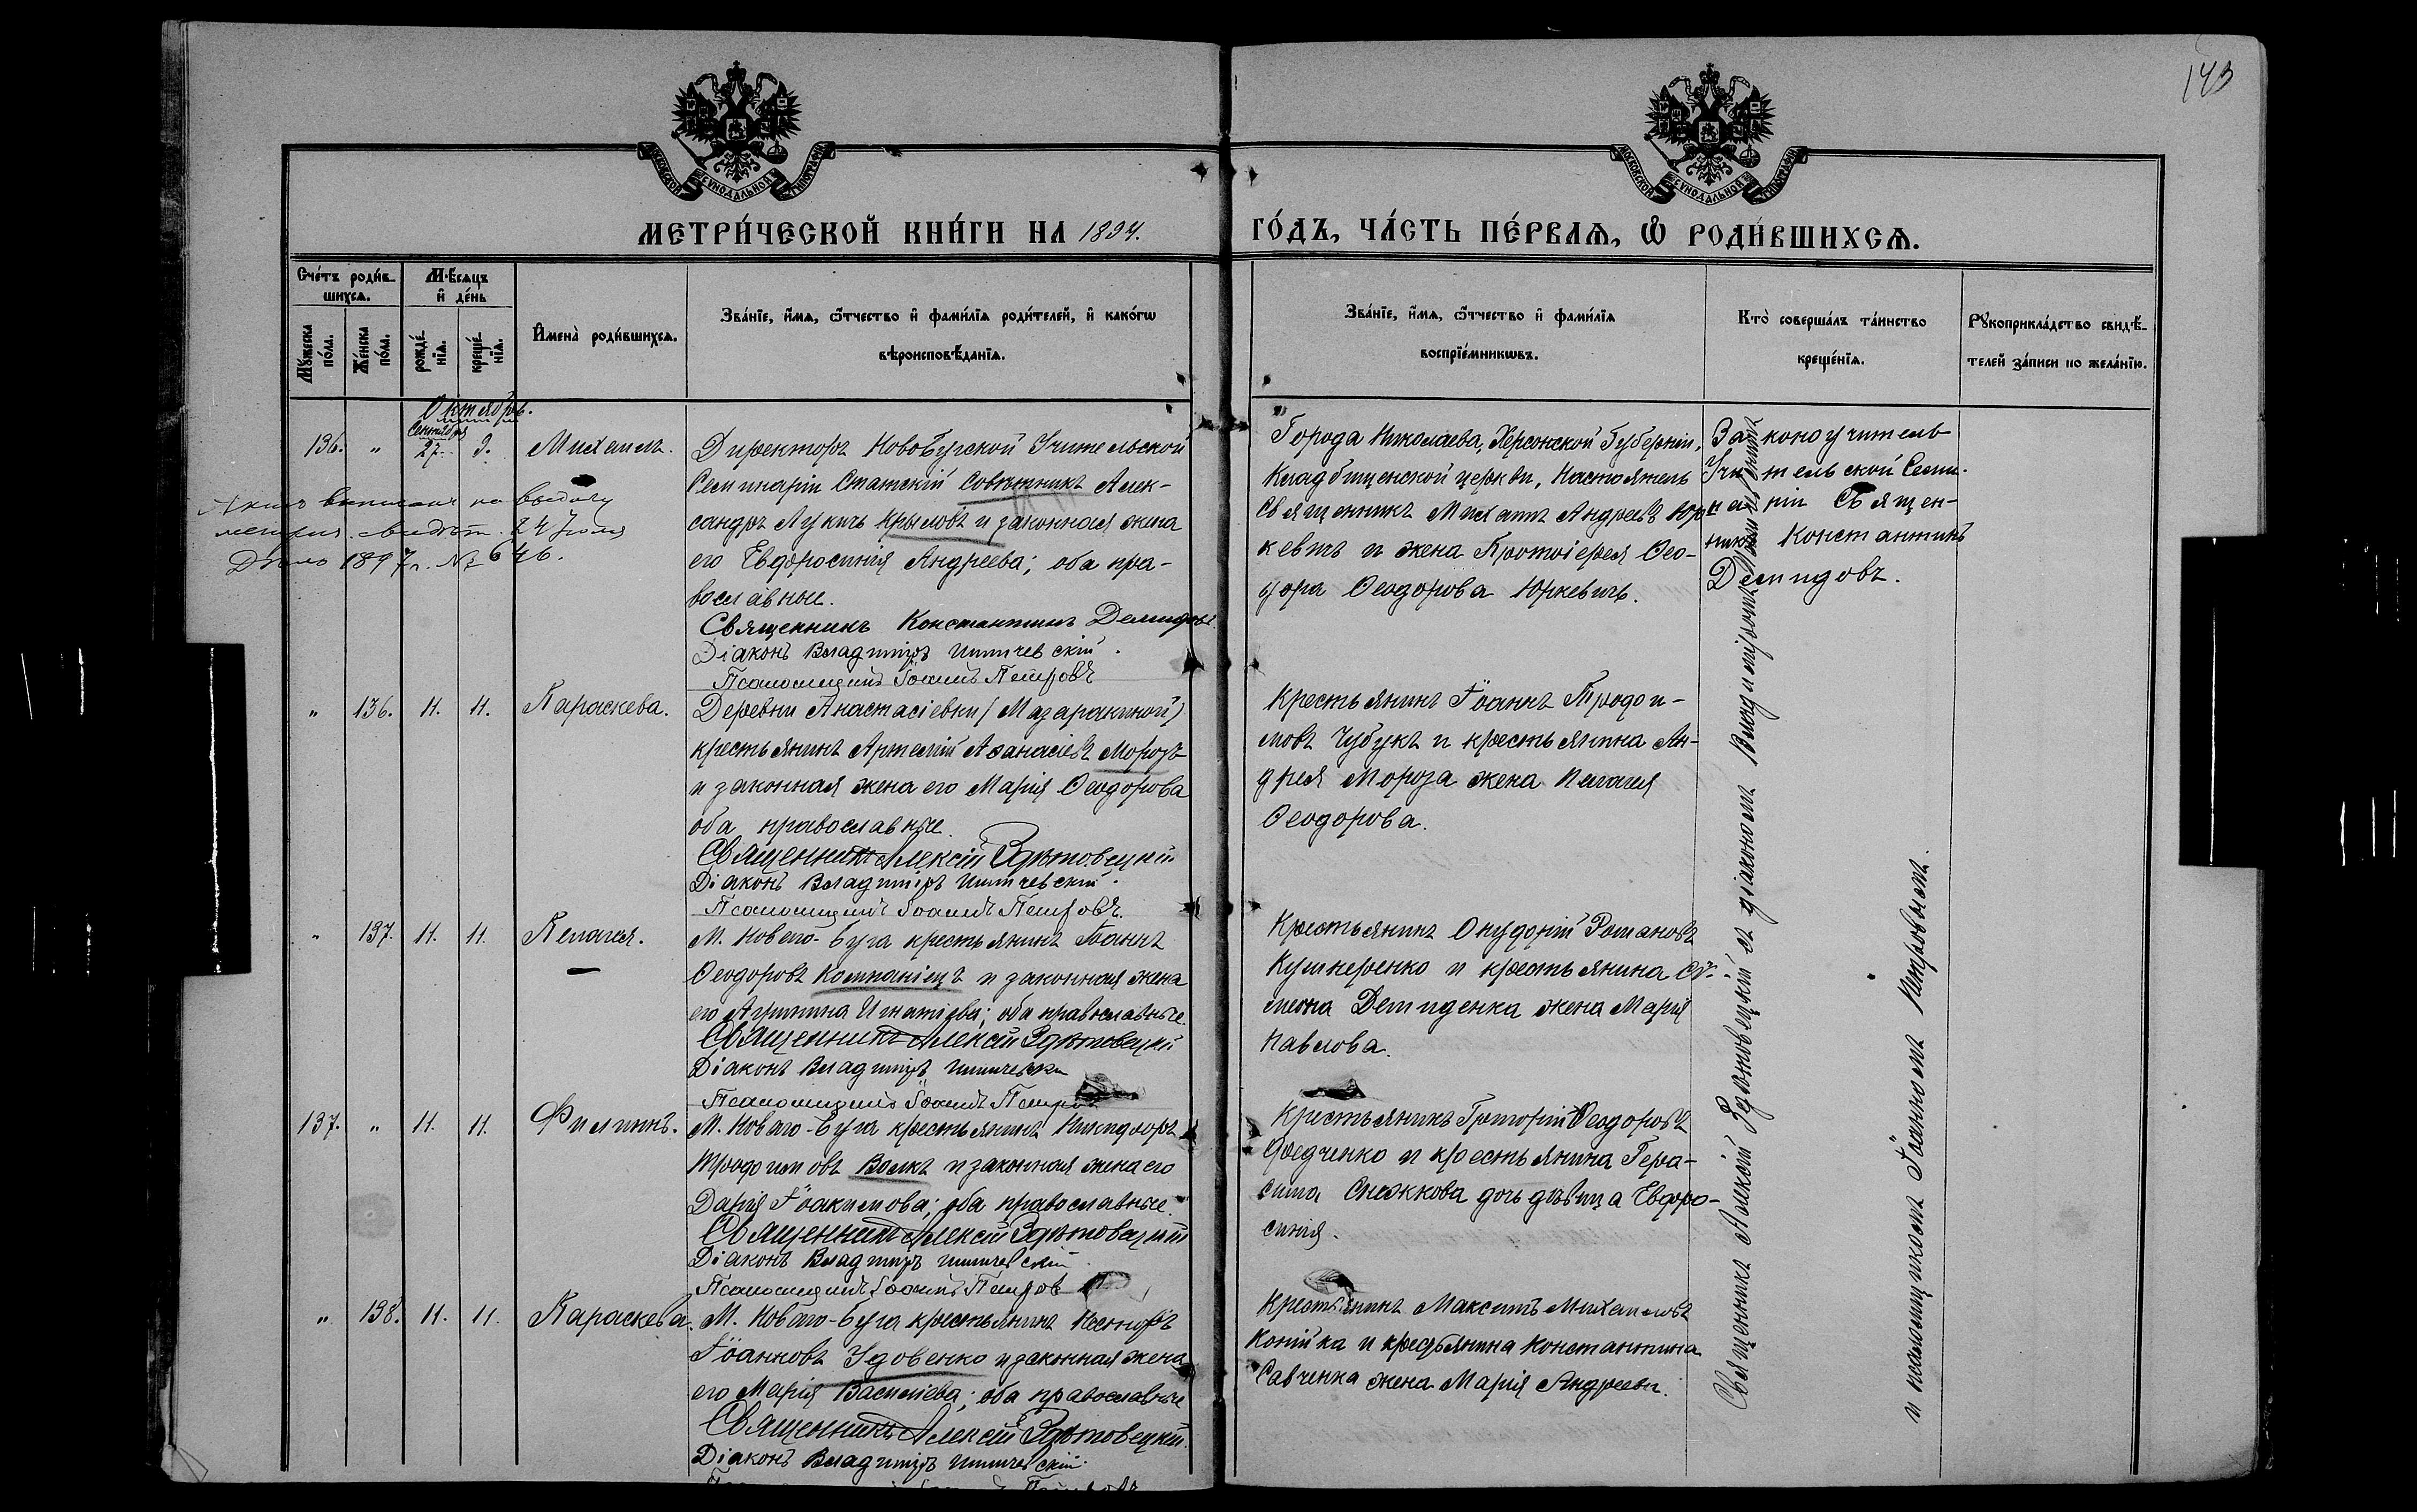 143
МОСКОВСКОЙ СѴНОДАЛЬНОЙ ТИПОГРАФІИ
МОСКОВСКОЙ СѴНОДАЛЬНОЙ ТИПОГРАФІИ
МЕТРИ́ЧЕСКОЙ КНИ́ГИ НА 1894.
ГО́ДЪ, ЧА́СТЬ ПЕ́РВАѦ, Ѡ҆ РОДИ́ВШИХСѦ.
Сче́тъ роди́в-
шихсѧ.
Мꙋ́жеска по́ла.
Же́нска по́ла.
Мѣ́сѧцъ
и҆ де́нь
рожде́-
нїѧ.
креще́-
нїѧ.
И҆мена̀ роди́вшихсѧ.
Зва́нїе, и҆́мѧ, ѻ҆́тчество и҆ фами́лїѧ роди́телей, и҆ како́гѡ
вѣроисповѣ́данїѧ.
Зва́нїе, и҆́мѧ, ѻ҆́тчество и҆ фами́лїѧ
воспрїе́мникѡвъ.
Кто̀ соверша́лъ та́инство
креще́нїѧ.
Рꙋкоприкла́дство свидѣ́-
телей за́писи по жела́нїю.
Октябрь.
Сентября
136. " 27. 3. Михаилъ.
Директоръ Новобугской Учительской
Семинаріи Статскій Совѣтникъ Алек-
сандръ Лукичъ Крыловъ и законная жена
его Евфросинія Андреева; оба пра-
вославные.
Священникъ Константинъ Демидовъ
Діаконъ Владиміръ
Псаломщикъ Іоаннъ Петровъ
Города Николаева, Херсонской Губерніи,
Кладбищенской церкви, Настоятель
Священникъ Михаилъ Андреевъ Юр-
кевичъ и жена Протоіерея Ѳео-
дора Ѳеодорова Юркевичъ.
Законоучитель
Учительской Семи-
наріи Священ-
никъ Константинъ
Демидовъ.
24 Іюля
1897 г. № 646.
" 136. 11. 11. Параскева.
Деревни Анастасіевки (Мазаракиной)
крестьянинъ Артемій Аѳанасіевъ Морозъ
и законная жена его Марія Ѳеодорова
оба православные.
Священникъ Алексій
Діаконъ Владиміръ
Псаломщикъ Іоаннъ Петровъ.
Крестьянинъ Іоаннъ Трофи-
мовъ Чубукъ и крестьянина Ан-
дрея Мороза жена Пелагея
Ѳеодорова.
" 137. 11. 11. Пелагея.
М. Новаго-Буга крестьянинъ Іоаннъ
Ѳеодоровъ Компаніецъ и законная жена
его Агрипина Игнатіева; оба православные.
Священникъ Алексій
Діаконъ Владиміръ
Псаломщикъ Іоаннъ Петровъ
Крестьянинъ Онуфрій Романовъ
Кушнеренко и крестьянина Сѵ-
меона Демиденка жена Марія
Павлова.
137. " 11. 11. Филиппъ.
М. Новаго-Буга крестьянинъ Никифоръ
Трофимовъ Волкъ и законная жена его
Дарія Іоакимова; оба православные.
Священникъ Алексій
Діаконъ Владиміръ
Псаломщикъ Іоаннъ Петров
Крестьянинъ Григорій Ѳеодоровъ
Федченко и крестьянина Гера-
сима Снежкова дочь дѣвица Евфро-
синія.
" 138. 11. 11. Параскева.
М. Новаго-Буга крестьянинъ Несторъ
Іоанновъ Удовенко и законная жена
его Марія Василіева; оба православные
Священникъ Алексій
Діаконъ Владиміръ
Крестьянинъ Максимъ Михаиловъ
Копійка и крестьянина Константина
Савченка жена Марія Андреева.
Священникъ Алексій съ діакономъ Владиміромъ
и псаломщикомъ Іоанномъ Петровымъ.